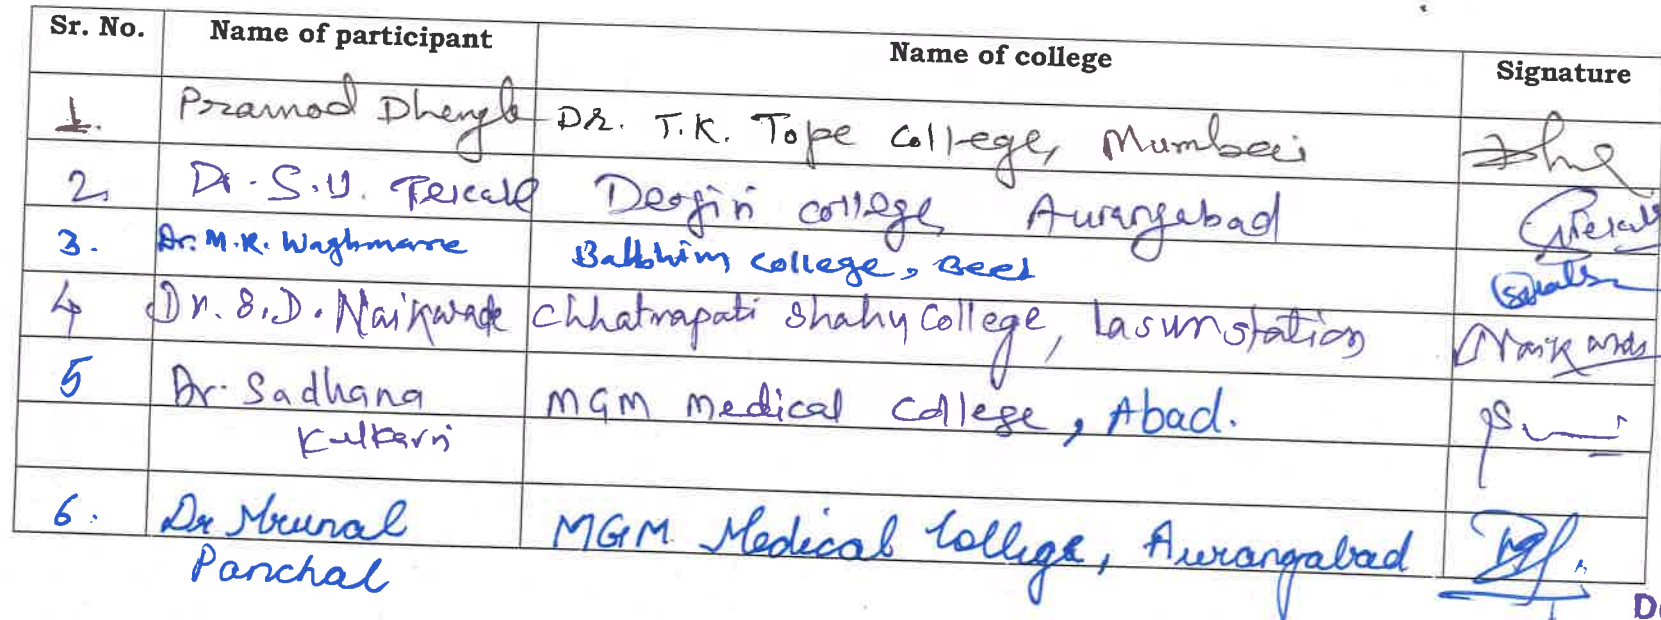 Sr. No. Name of participant Name of college Signature
1. Pramod Dr. T.K. Tope College, Mumbai
2. Dr. S.U. Deogiri college Aurangabad
3. Dr. M.R. Waghmare Balbhim College, Beed
4 Dr. S.D. Naikwade Chhatrapati Shahu College, Lasurstation Naikwade
5 Dr. Sadhana MGM Medical College, Abad.
Kulkarni
6. Dr Mrunal MGM Medical College, Aurangabad
Panchal